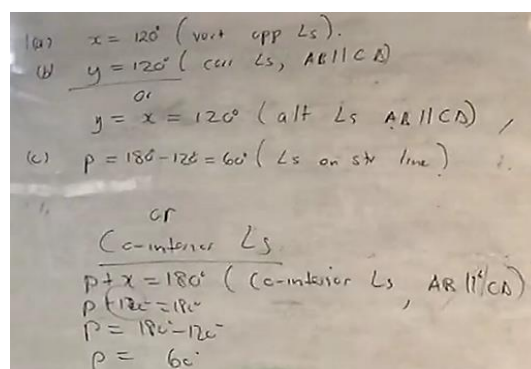 1(a) x = 120° (vert opp ∠s).
(b) y = 120° (corr ∠s, AB // CD)
or
y = x = 120° (alt ∠s AB // CD),
(c) p = 180 - 120 = 60° (∠s on str line)
or
Co-interior ∠s
p + x = 180° (Co-interior ∠s, AB // CD)
p + 120° = 180°
p = 180° - 120°
p = 60°